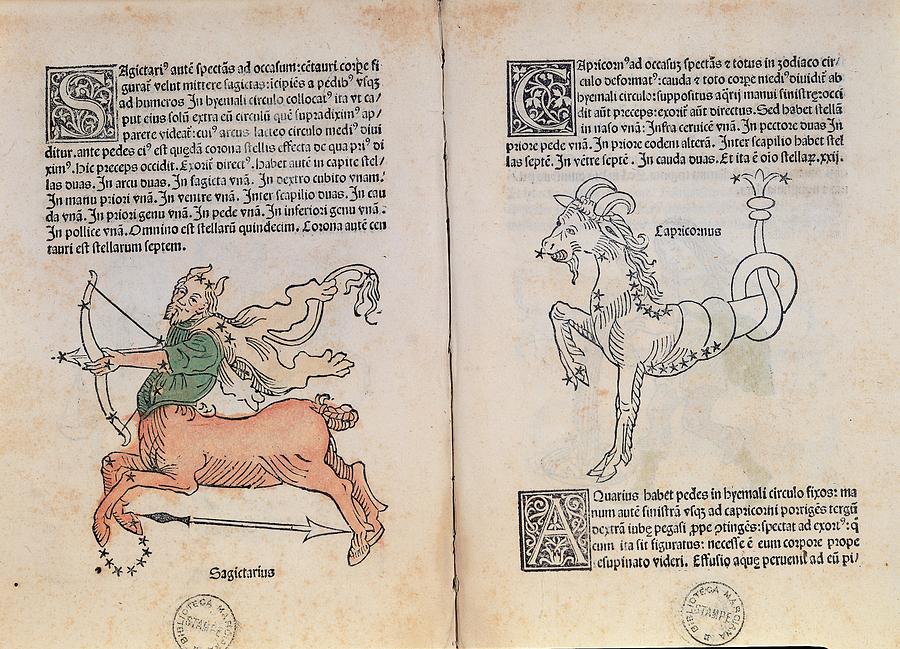 SAgictariꝰ autē spectās ad occasum: cētauri corpe fi
gurat velut mittere sagictas: icipiēs a pedibꝰ vsqꝫ
ad humeros In hyemali circulo collocatꝰ ita vt ca/
put eius solū extra eū circulū quē supradiximꝰ ap/
parere videat̄: cuiꝰ arcus lacteo circulo mediꝰ diui
ditur. ante pedes eiꝰ est quędā corona stellis effecta de qua priꝰ di
ximꝰ. hic preceps occidit. Exorit̄ directꝰ. Habet autē in capite stel/
las duas. In arcu duas. In sagicta vnā. In dextro cubito vnam.
In manu priori vnā. In ventre vnā. Inter scapilio duas. In cau
da vnā. In priori genu vnā. In pede vnā. In inferiori genu vnā.
In pollice vnā. Omnino est stellarū quindecim. Corona autē cen
tauri est stellarum septem.
Sagictarius
BIBLIOTECA MARCIANA
STAMPE
CApricornꝰ ad occasuꝫ spectās & totus in zodiaco cir/
culo deformatꝰ: cauda & toto corpe mediꝰ diuidit̄ ab
hyemali circulo: suppositus aq̄rij manui sinistre: occi
dit aūt preceps: exorit̄ aūt directus. Sed habet stellā
in naso vnā: Infra ceruicē vnā. In pectore duas In
priore pede vnā. In priore eodem alterā. Inter scapilio habet stel
las septē. In vētre septē. In cauda duas. Et ita ē oīo stellaꝝ. xxij.
Capricornus
AQuarius habet pedes in hyemali circulo fixos: ma
num autē sinistrā vsqꝫ ad capricorni porrigēs tergū
dextrā iubę pegasi ꝓpe ↄtingēs: spectat ad exortꝰ: q̄
cum ita sit figuratus: necesse ē eum corpore prope
resupinato videri. Effusio aquę peruenit ad eū pi/
BIBLIOTECA MARCIANA
STAMPE